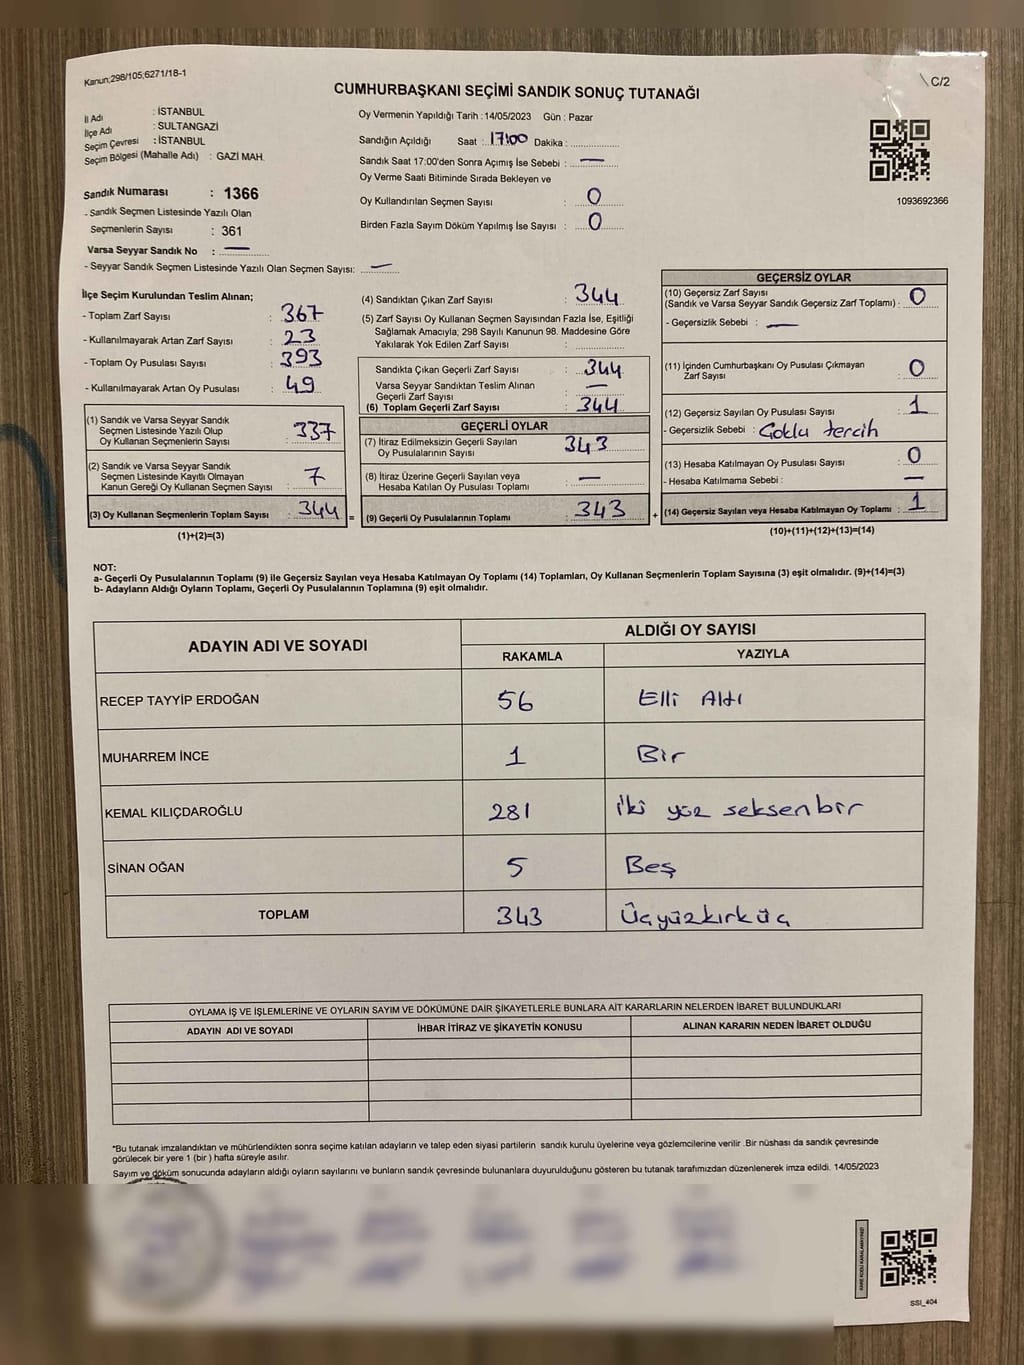 Kanun;298/105;6271/18-1
C/2
CUMHURBAŞKANI SEÇİMİ SANDIK SONUÇ TUTANAĞI
İl Adı : İSTANBUL
İlçe Adı : SULTANGAZİ
Seçim Çevresi : İSTANBUL
Seçim Bölgesi (Mahalle Adı) : GAZİ MAH.
Sandık Numarası : 1366
- Sandık Seçmen Listesinde Yazılı Olan
Seçmenlerin Sayısı : 361
Varsa Seyyar Sandık No : —
- Seyyar Sandık Seçmen Listesinde Yazılı Olan Seçmen Sayısı: —
Oy Vermenin Yapıldığı Tarih : 14/05/2023 Gün : Pazar
Sandığın Açıldığı Saat : 17:00 Dakika :
Sandık Saat 17:00'den Sonra Açımış İse Sebebi : —
Oy Verme Saati Bitiminde Sırada Bekleyen ve
Oy Kullandırılan Seçmen Sayısı : 0
Birden Fazla Sayım Döküm Yapılmış İse Sayısı : 0
1093692366
İlçe Seçim Kurulundan Teslim Alınan;
- Toplam Zarf Sayısı : 367
- Kullanılmayarak Artan Zarf Sayısı : 23
- Toplam Oy Pusulası Sayısı : 393
- Kullanılmayarak Artan Oy Pusulası : 49
(1) Sandık ve Varsa Seyyar Sandık
Seçmen Listesinde Yazılı Olup
Oy Kullanan Seçmenlerin Sayısı : 337
(2) Sandık ve Varsa Seyyar Sandık
Seçmen Listesinde Kayıtlı Olmayan
Kanun Gereği Oy Kullanan Seçmen Sayısı : 7
(3) Oy Kullanan Seçmenlerin Toplam Sayısı : 344 =
(1)+(2)=(3)
(4) Sandıktan Çıkan Zarf Sayısı : 344
(5) Zarf Sayısı Oy Kullanan Seçmen Sayısından Fazla İse, Eşitliği
Sağlamak Amacıyla; 298 Sayılı Kanunun 98. Maddesine Göre
Yakılarak Yok Edilen Zarf Sayısı :
Sandıkta Çıkan Geçerli Zarf Sayısı : 344
Varsa Seyyar Sandıktan Teslim Alınan
Geçerli Zarf Sayısı : —
(6) Toplam Geçerli Zarf Sayısı : 344
GEÇERLİ OYLAR
(7) İtiraz Edilmeksizin Geçerli Sayılan
Oy Pusulasının Sayısı : 343
(8) İtiraz Üzerine Geçerli Sayılan veya
Hesaba Katılan Oy Pusulası Toplamı : —
(9) Geçerli Oy Pusulalarının Toplamı : 343 +
GEÇERSİZ OYLAR
(10) Geçersiz Zarf Sayısı
(Sandık ve Varsa Seyyar Sandık Geçersiz Zarf Toplamı) : 0
- Geçersizlik Sebebi : —
(11) İçinden Cumhurbaşkanı Oy Pusulası Çıkmayan
Zarf Sayısı : 0
(12) Geçersiz Sayılan Oy Pusulası Sayısı : 1
- Geçersizlik Sebebi : Çoklu tercih
(13) Hesaba Katılmayan Oy Pusulası Sayısı : 0
- Hesaba Katılmama Sebebi : —
(14) Geçersiz Sayılan veya Hesaba Katılmayan Oy Toplamı : 1
(10)+(11)+(12)+(13)=(14)
NOT:
a- Geçerli Oy Pusulalarının Toplamı (9) ile Geçersiz Sayılan veya Hesaba Katılmayan Oy Toplamı (14) Toplamları, Oy Kullanan Seçmenlerin Toplam Sayısına (3) eşit olmalıdır. (9)+(14)=(3)
b- Adayların Aldığı Oyların Toplamı, Geçerli Oy Pusulalarının Toplamına (9) eşit olmalıdır.
ADAYIN ADI VE SOYADI ALDIĞI OY SAYISI
RAKAMLA YAZIYLA
RECEP TAYYİP ERDOĞAN 56 Elli Altı
MUHARREM İNCE 1 Bir
KEMAL KILIÇDAROĞLU 281 iki yüz seksenbir
SİNAN OĞAN 5 Beş
TOPLAM 343 Üçyüzkırküç
OYLAMA İŞ VE İŞLEMLERİNE VE OYLARIN SAYIM VE DÖKÜMÜNE DAİR ŞİKAYETLERLE BUNLARA AİT KARARLARIN NELERDEN İBARET BULUNDUKLARI
ADAYIN ADI VE SOYADI İHBAR İTİRAZ VE ŞİKAYETİN KONUSU ALINAN KARARIN NEDEN İBARET OLDUĞU
*Bu tutanak imzalandıktan ve mühürlendikten sonra seçime katılan adayların ve talep eden siyasi partilerin sandık kurulu üyelerine veya gözlemcilerine verilir .Bir nüshası da sandık çevresinde
görülecek bir yere 1 (bir ) hafta süreyle asılır.
Sayım ve döküm sonucunda adayların aldığı oyların sayılarını ve bunların sandık çevresinde bulunanlara duyurulduğunu gösteren bu tutanak tarafımızdan düzenlenerek imza edildi. 14/05/2023
SSI_404